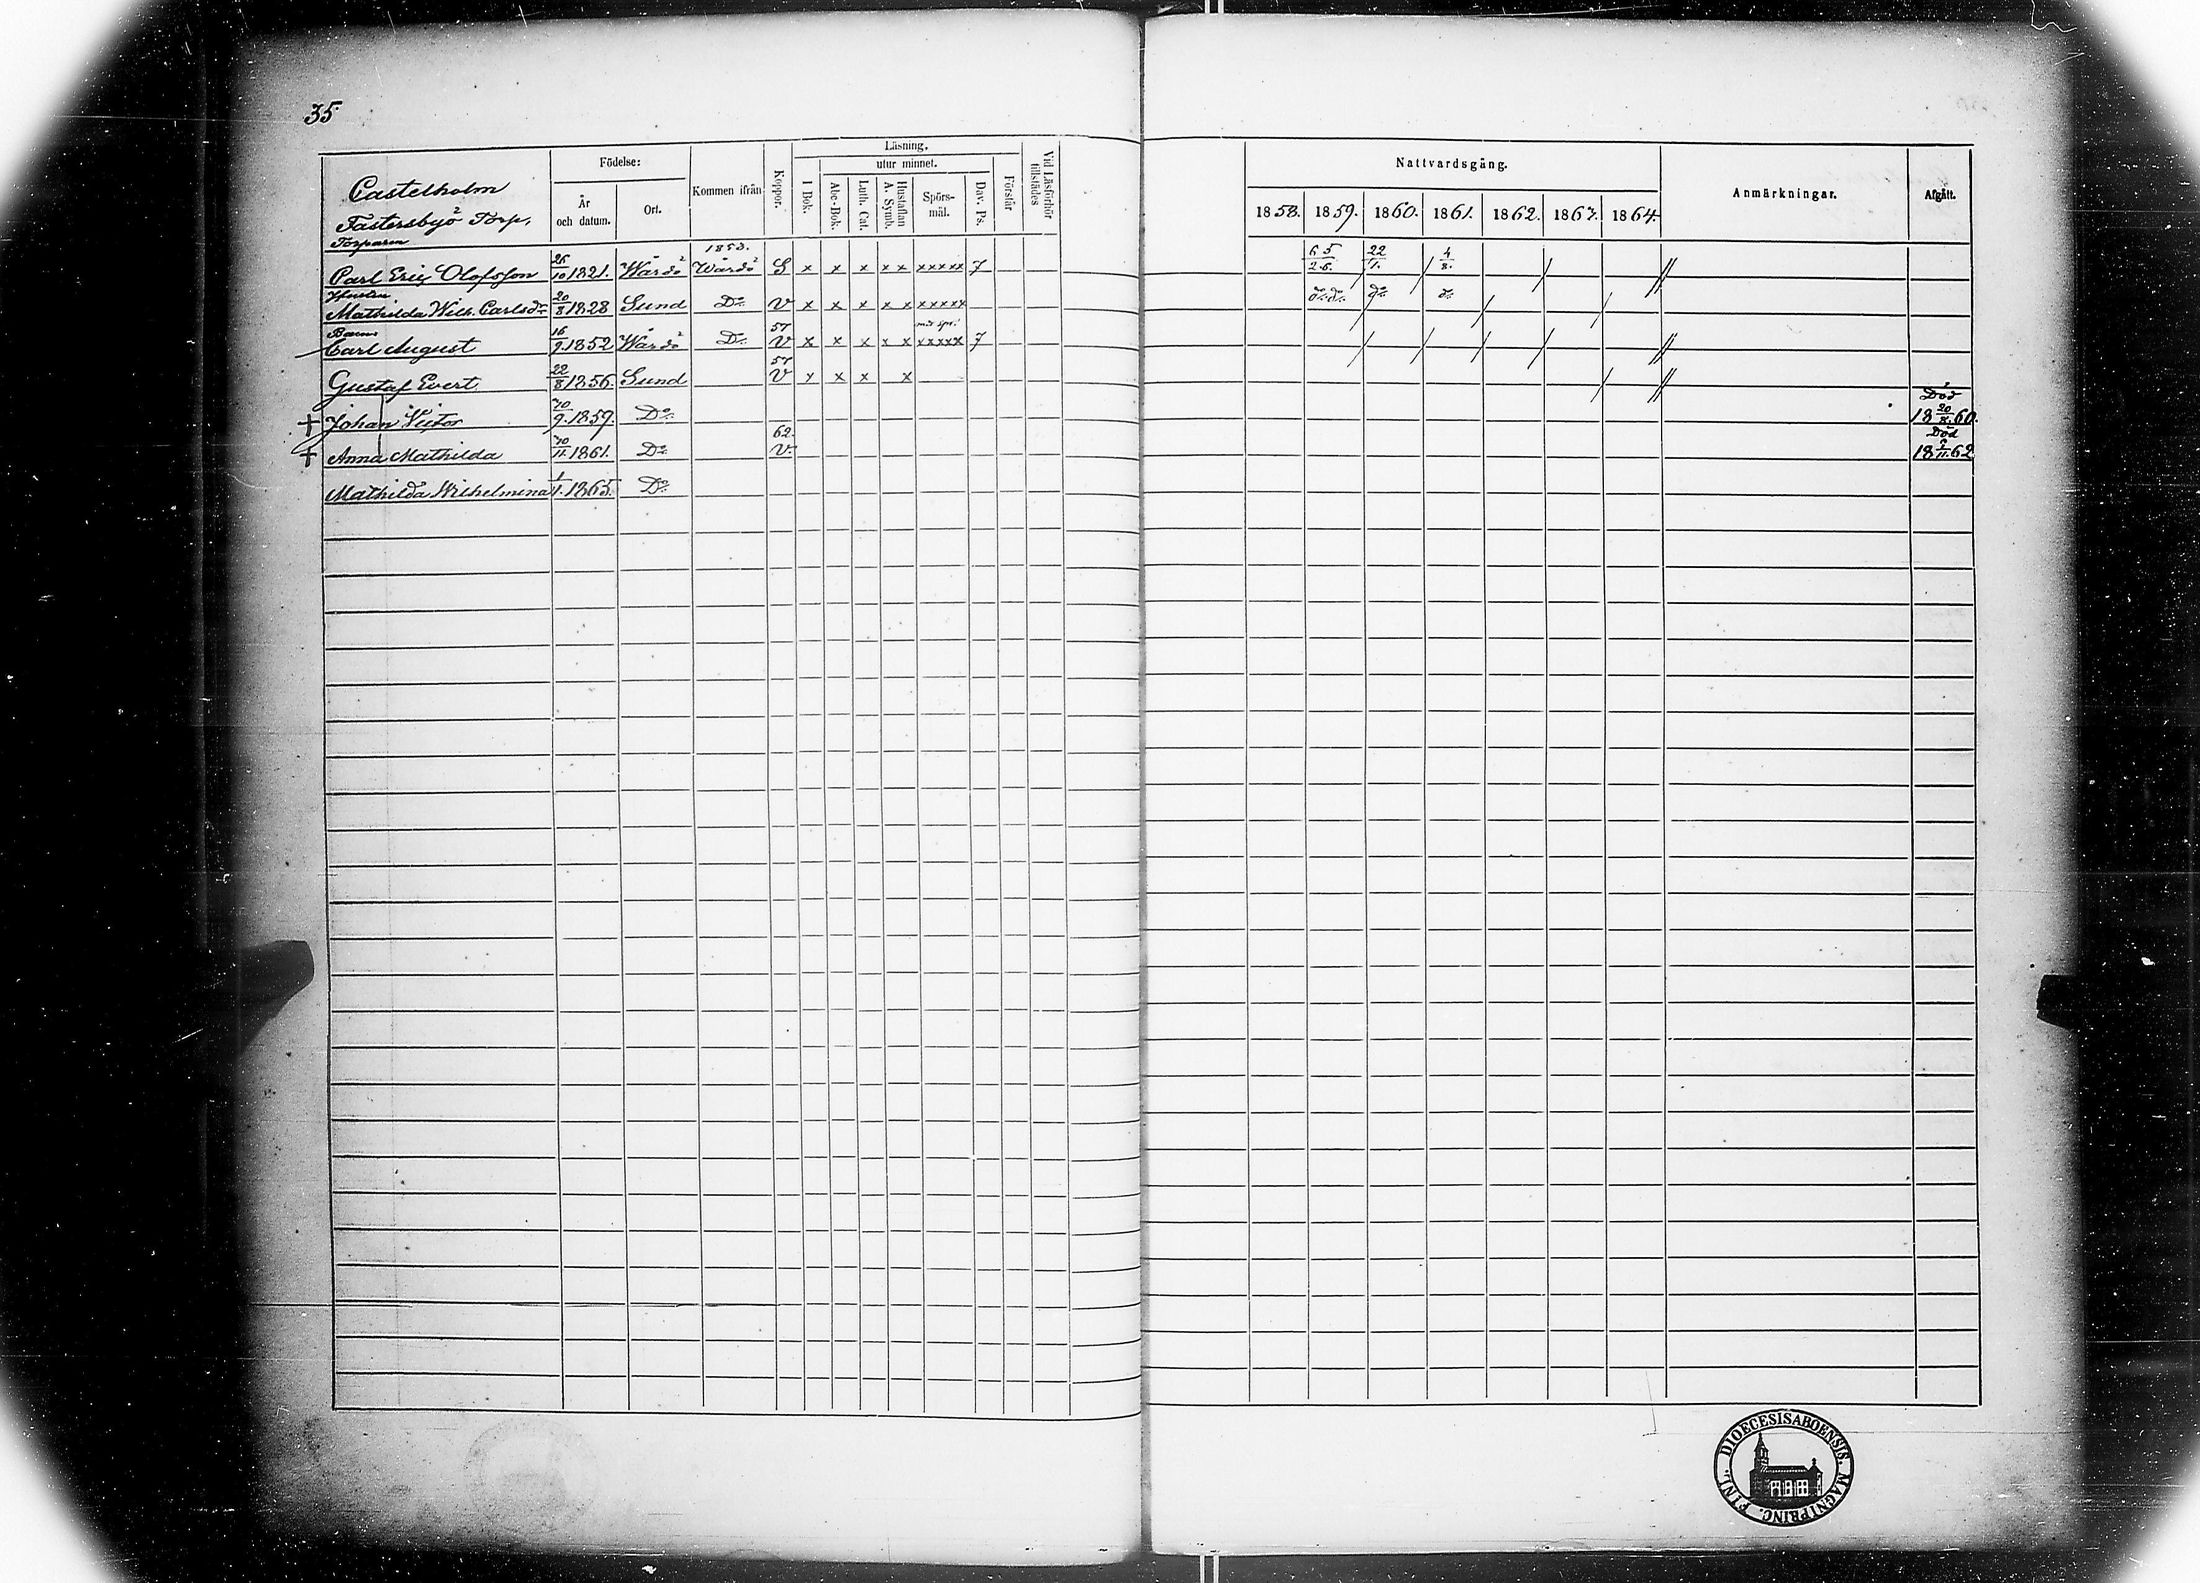 35
Castelholm
Fastersbyö Torp.
Födelse:
År och datum.
Ort.
Kommen ifrån
Koppor.
Läsning.
I Bok.
utur minnet.
Abc-Bok.
Luth. Cat.
Hustaflan A. Symb.
Spörsmål.
Dav. Ps.
Förstår
Vid Läsförhör tillstädes
Nattvardsgång.
1858. 1859. 1860. 1861. 1862. 1863. 1864.
Anmärkningar.
Afgått.
Torparen 1853.
Carl Eric Olofsson 26/10 1821. Wårdö Wårdö S x x x x x xxxxx 7 6 5/2.6. 22/1. 4/8.
Hustru
Mathilda Wilh. Carlsdr 20/8 1828 Sund Do V x x x x x xxxxx do do do d:
Barn: 57
Carl August 16/9 1852 Wårdö Do V x x x x x xxxxx 7
57
Gustaf Evert 22/8 1856. Sund V x x x x
Död
† Johan Victor 30/9. 1859. Do 18 20/8. 60.
62. Död
† Anna Mathilda 30/11 1861. Do V. 18 /11. 62
Mathilda Wilhelmina 1/1. 1865. Do
FINL. DIOECESIS ABOENSIS. MAGNI PRINC.